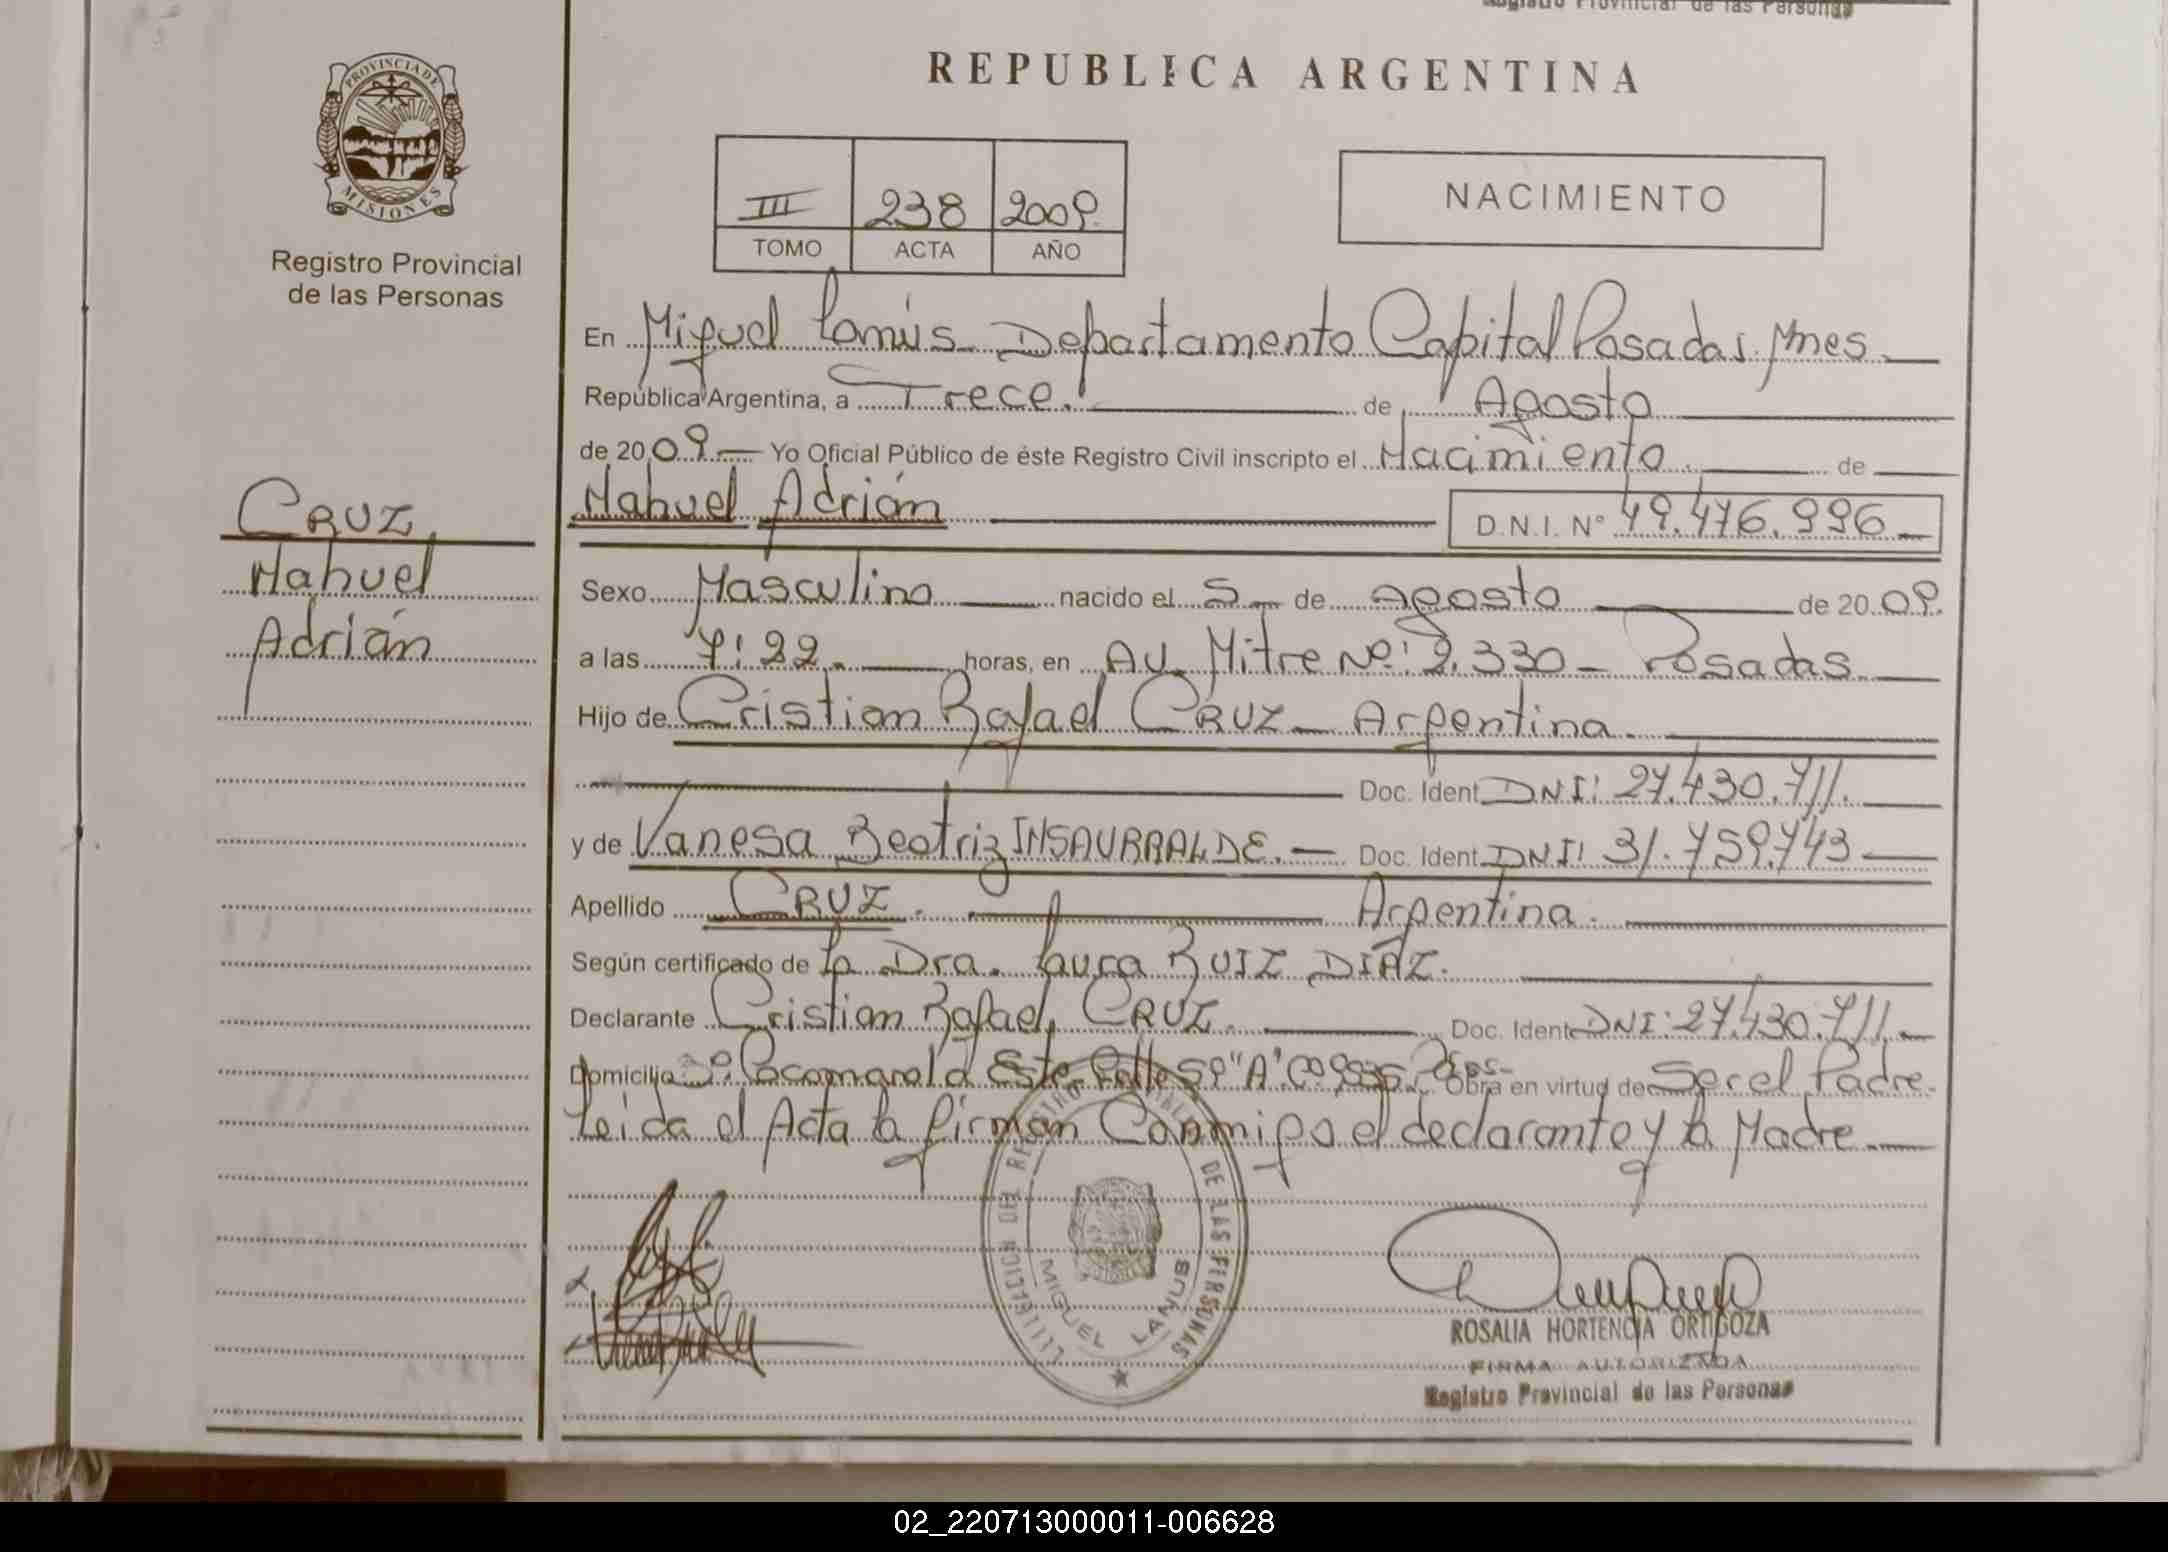 Registro Provincial de las Personas
PROVINCIA DE
MISIONES
Registro Provincial
de las Personas
REPUBLICA ARGENTINA
III 238 2009.
TOMO ACTA AÑO
NACIMIENTO
En Miguel Lanús - Departamento Capital Posadas. Mnes
República Argentina, a Trece. de Agosto
de 2009 Yo Oficial Público de éste Registro Civil inscripto el Nacimiento. de
Nahuel Adrián D.N.I. N° 49.476.996
CRUZ,
Nahuel
Adrián
Sexo Masculino nacido el 5 de agosto de 2009.
a las 7:22. horas, en Av. Mitre Nº: 2.330 - Posadas
Hijo de Cristian Rafael CRUZ - Argentina.
Doc. Ident DNI: 27.430.711.
y de Vanesa Beatriz INSAURRALDE. Doc. Ident DNI: 31.759.743
Apellido CRUZ. Argentina.
Según certificado de la Dra. Laura RUIZ DIAZ.
Declarante Cristian Rafael CRUZ. Doc. Ident DNI: 27.430.711.
Domicilio Este "A" Obra en virtud de Ser el Padre.
Leida el Acta la firman Conmigo el declarante y la Madre
REGISTRO DE LAS PERSONAS
MIGUEL LANUS
ROSALIA HORTENCIA ORTIGOZA
FIRMA AUTORIZADA
Registro Provincial de las Personas
02_220713000011-006628